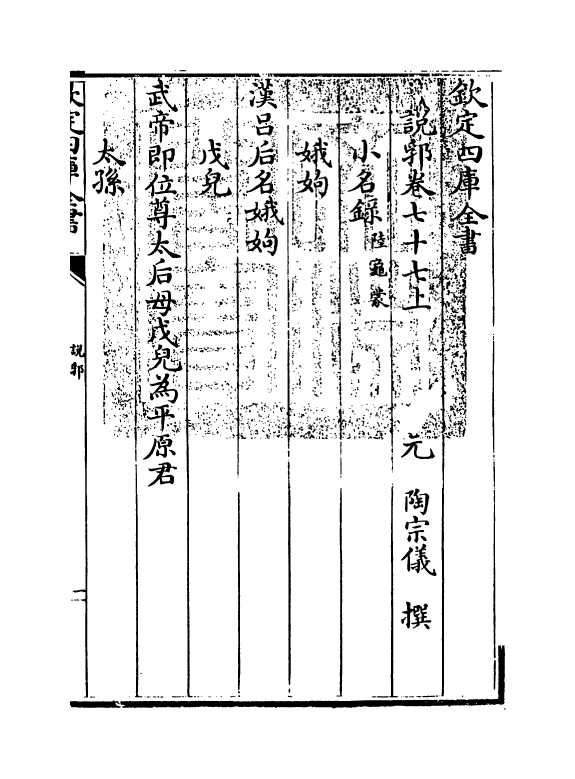 欽定四庫全書
說郛卷七十七上　元　陶宗儀　撰
小名錄 陸龜蒙
娥姁
漢呂后名娥姁
戊兒
武帝即位尊太后母戊兒為平原君
太孫
欽定四庫全書
說郛
一